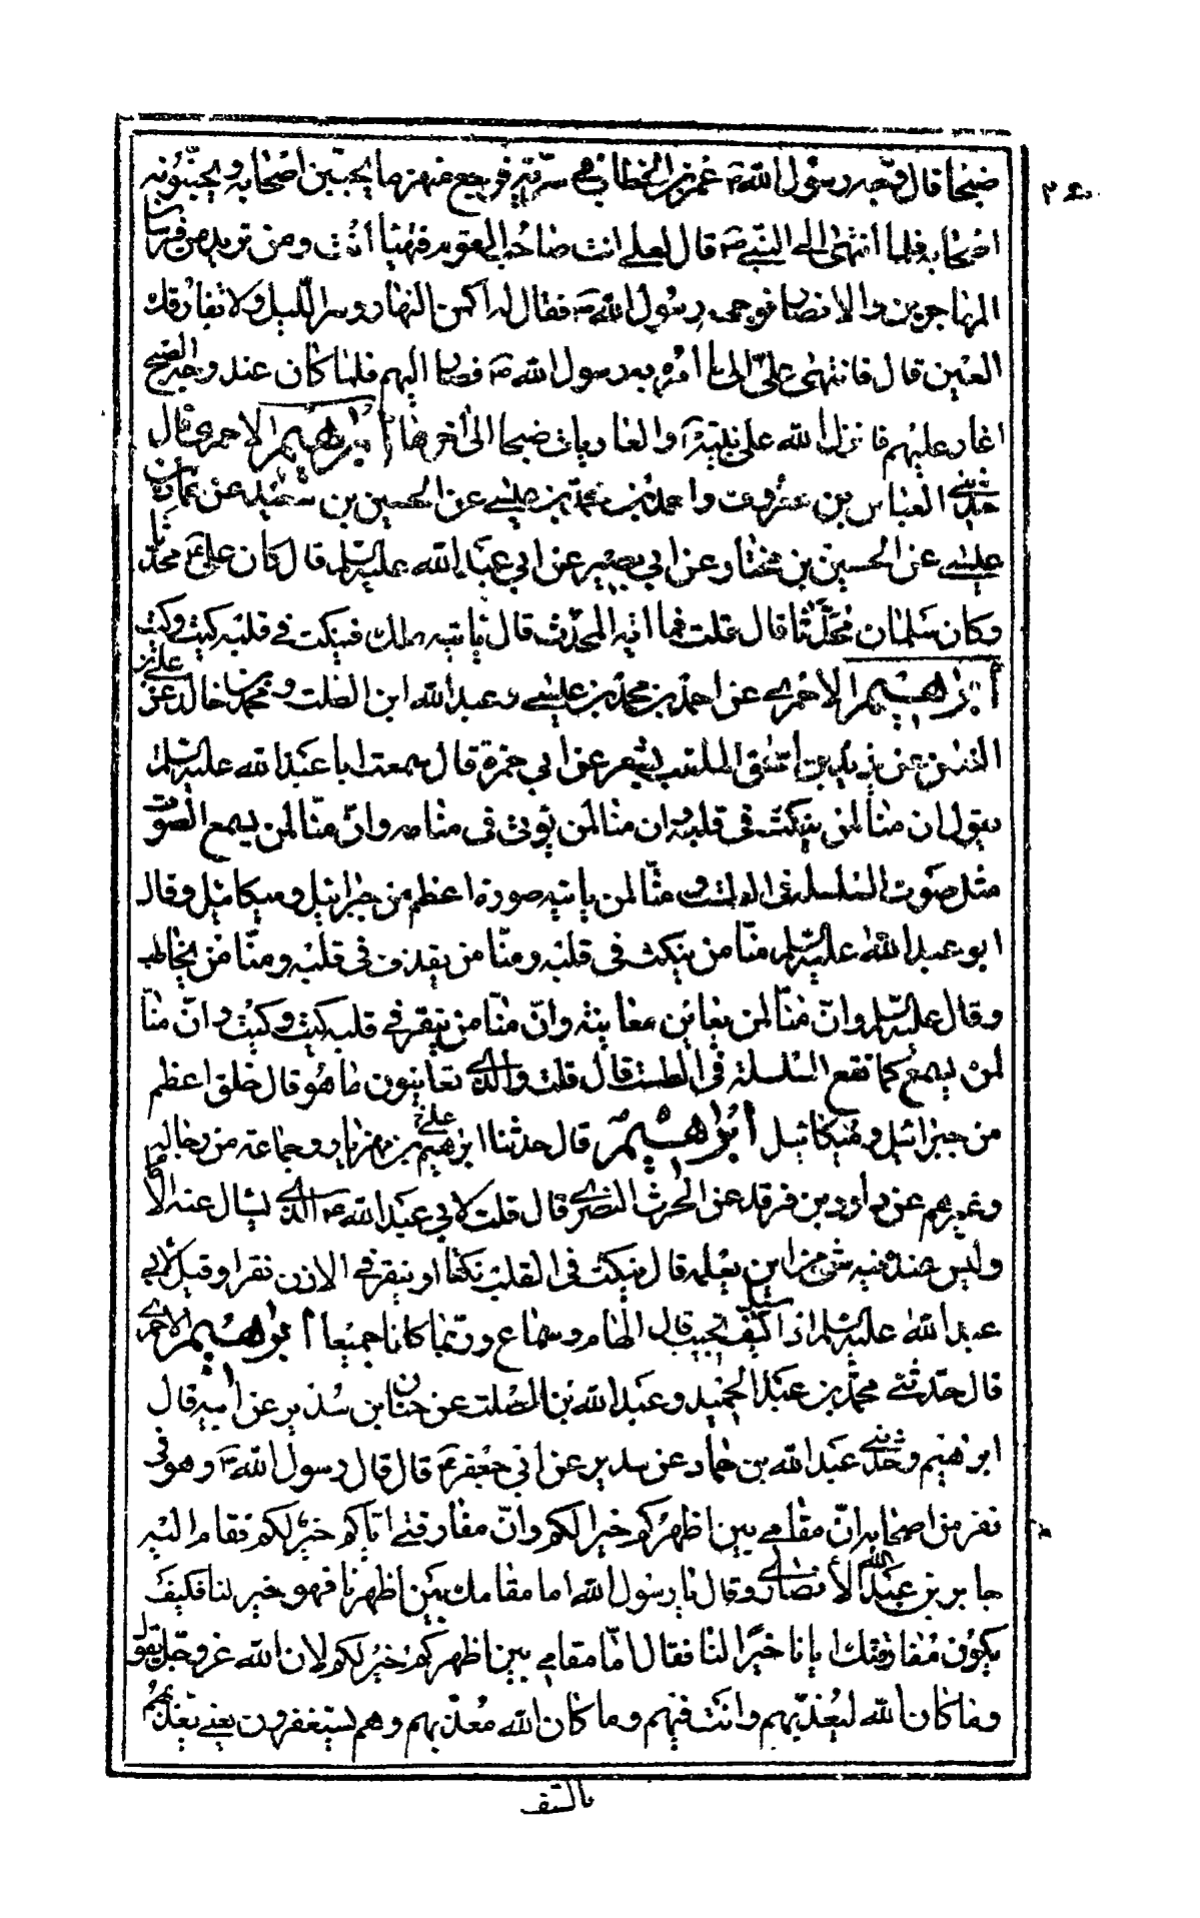 ضبحا قال وجه رسول الله ص عمر بن الخطاب في سرية فرجع منهزما يجبن اصحابه ويجبنونه
اصحابه فلما انتهى الى النبي ص قال لعلي انت صاحب القوم فتهيا انت ومن تريد من فرسان
المهاجرين والانصار فوجهه رسول الله ص فقال له اكمن النهار وسر الليل ولا تفارقك
العين قال فانتهى علي الى ما امره به رسول الله ص فصار اليهم فلما كان عند وجه الصبح
اغار عليهم فانزل الله على نبيه ص والعاديات ضبحا الى اخرها ابرهيم الاحمري قال
حدثني العباس بن معروف واحمد بن محمد بن عيسى عن الحسين بن سعيد عن حماد بن
عيسى عن الحسين بن مختار عن ابي بصير عن ابي عبد الله عليه السلم قال كان علي ع محدثا
وكان سلمان محدثا قال قلت فما اية المحدث قال ياتيه ملك فينكت في قلبه كيت وكيت
ابرهيم الاحمري عن احمد بن محمد بن عيسى وعبد الله ابن الصلت ومحمد بن خالد عن علي بن
النعمن عن يزيد بن اسحق الملقب بشعر عن ابي حمزة قال سمعت ابا عبد الله عليه السلم
يقول ان منا لمن ينكت في قلبه وان منا لمن يؤتى في منامه وان منا لمن يسمع الصوت
مثل صوت السلسلة في الطست ومنا لمن ياتيه صورة اعظم من جبرائيل وميكائيل وقال
ابو عبد الله عليه السلم منا من ينكث في قلبه ومنا من يقذف في قلبه ومنا من يخاطب
وقال عليه السلم وان منا لمن يعاين معاينة وان منا من ينقر في قلبه كيت وكيت وان منا
لمن يسمع كما تقع السلسلة في الطست قال قلت والذي تعاينون ما هو قال خلق اعظم
من جبرائيل وميكائيل ابراهيم قال حدثنا ابرهيم بن مهزيار وجماعة من رجاله
وغيرهم عن داود بن فرقد عن الحرث النضري قال قلت لابي عبد الله ع الذي يسال عنه الامام
وليس عنده فيه شئ من اين يعلمه قال ينكت في القلب نكتا او ينقر في الاذن نقرا وقيل لابي
عبد الله عليه السلم اذا سئل كيف تجيب قال الهام وسماع وربما كانا جميعا ابراهيم الاحمري
قال حدثني محمد بن عبد الحميد وعبد الله بن الصلت عن حنان ابن سدير عن ابيه قال
ابرهيم وحدثني عبد الله بن حماد عن سدير عن ابي جعفر ع قال قال رسول الله ص وهو في
نفر من اصحابه ان مقامي بين اظهركم خير لكم وان مفارقتي اياكم خير لكم فقام اليه
جابر بن عبد الله الانصاري وقال يا رسول الله اما مقامك بين اظهرنا فهو خير لنا فكيف
يكون مفارقتك ايانا خيرا لنا فقال اما مقامي بين اظهركم خير لكم لان الله عز وجل يقول
وما كان الله ليعذبهم وانت فيهم وما كان الله معذبهم وهم يستغفرون يعني يعذبهم
بالسيف